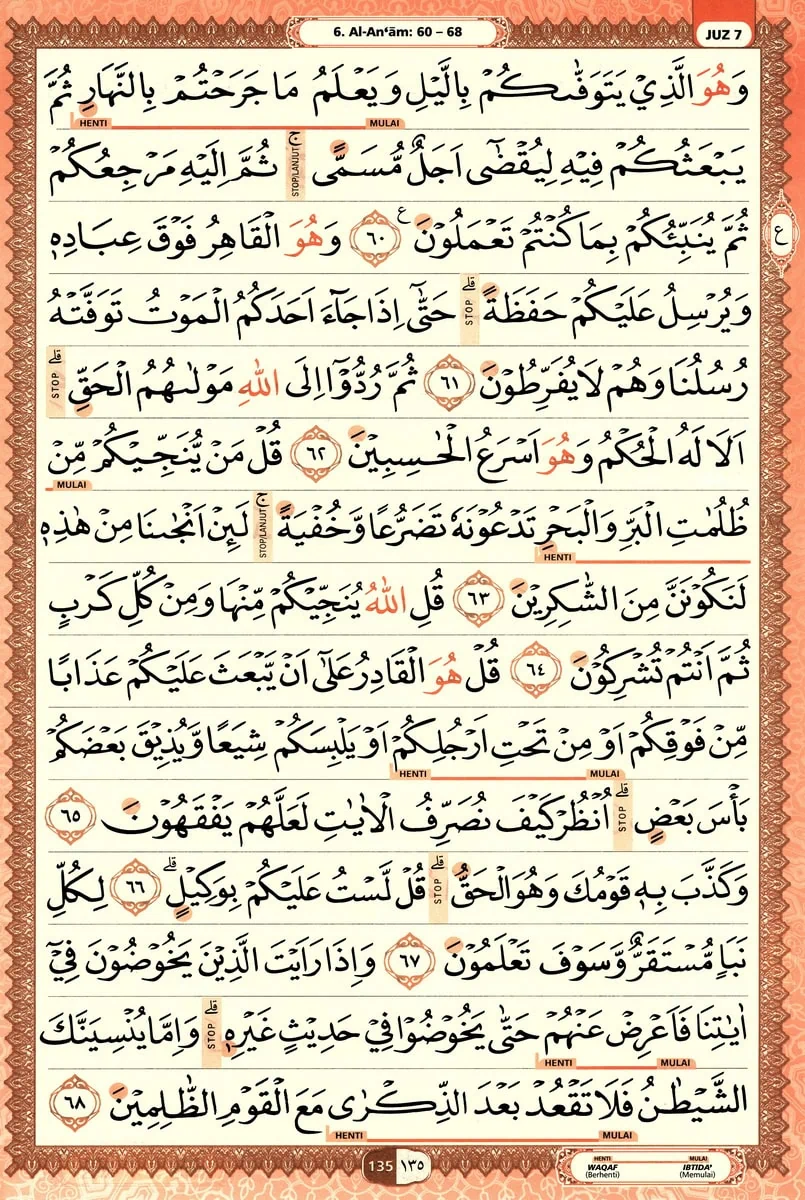 6. Al-An‘ām: 60 – 68
JUZ 7
وَهُوَ الَّذِيْ يَتَوَفّٰىكُمْ بِالَّيْلِ وَيَعْلَمُ مَا جَرَحْتُمْ بِالنَّهَارِ ثُمَّ
HENTI MULAI
يَبْعَثُكُمْ فِيْهِ لِيُقْضٰٓى اَجَلٌ مُّسَمًّىۚ STOP/LANJUT ثُمَّ اِلَيْهِ مَرْجِعُكُمْ
ثُمَّ يُنَبِّئُكُمْ بِمَا كُنْتُمْ تَعْمَلُوْنَ ࣖ ٦٠ وَهُوَ الْقَاهِرُ فَوْقَ عِبَادِهٖ
ع
وَيُرْسِلُ عَلَيْكُمْ حَفَظَةًۗ STOP حَتّٰٓى اِذَا جَاۤءَ اَحَدَكُمُ الْمَوْتُ تَوَفَّتْهُ
رُسُلُنَا وَهُمْ لَا يُفَرِّطُوْنَ ٦١ ثُمَّ رُدُّوْٓا اِلَى اللّٰهِ مَوْلٰىهُمُ الْحَقِّۗ STOP
اَلَا لَهُ الْحُكْمُ وَهُوَ اَسْرَعُ الْحٰسِبِيْنَ ٦٢ قُلْ مَنْ يُّنَجِّيْكُمْ مِّنْ
MULAI
ظُلُمٰتِ الْبَرِّ وَالْبَحْرِ تَدْعُوْنَهٗ تَضَرُّعًا وَّخُفْيَةًۚ STOP/LANJUT لَىِٕنْ اَنْجٰىنَا مِنْ هٰذِهٖ
HENTI
لَنَكُوْنَنَّ مِنَ الشّٰكِرِيْنَ ٦٣ قُلِ اللّٰهُ يُنَجِّيْكُمْ مِّنْهَا وَمِنْ كُلِّ كَرْبٍ
ثُمَّ اَنْتُمْ تُشْرِكُوْنَ ٦٤ قُلْ هُوَ الْقَادِرُ عَلٰٓى اَنْ يَّبْعَثَ عَلَيْكُمْ عَذَابًا
مِّنْ فَوْقِكُمْ اَوْ مِنْ تَحْتِ اَرْجُلِكُمْ اَوْ يَلْبِسَكُمْ شِيَعًا وَّيُذِيْقَ بَعْضَكُمْ
HENTI MULAI
بَأْسَ بَعْضٍۗ STOP اُنْظُرْ كَيْفَ نُصَرِّفُ الْاٰيٰتِ لَعَلَّهُمْ يَفْقَهُوْنَ ٦٥
وَكَذَّبَ بِهٖ قَوْمُكَ وَهُوَ الْحَقُّۗ STOP قُلْ لَّسْتُ عَلَيْكُمْ بِوَكِيْلٍۗ ٦٦ لِكُلِّ
نَبَاٍ مُّسْتَقَرٌّ وَّسَوْفَ تَعْلَمُوْنَ ٦٧ وَاِذَا رَاَيْتَ الَّذِيْنَ يَخُوْضُوْنَ فِيْٓ
اٰيٰتِنَا فَاَعْرِضْ عَنْهُمْ حَتّٰى يَخُوْضُوْا فِيْ حَدِيْثٍ غَيْرِهٖۗ STOP وَاِمَّا يُنْسِيَنَّكَ
HENTI MULAI
الشَّيْطٰنُ فَلَا تَقْعُدْ بَعْدَ الذِّكْرٰى مَعَ الْقَوْمِ الظّٰلِمِيْنَ ٦٨
HENTI MULAI
135 ١٣٥
HENTI MULAI
WAQAF IBTIDA'
(Berhenti) (Memulai)